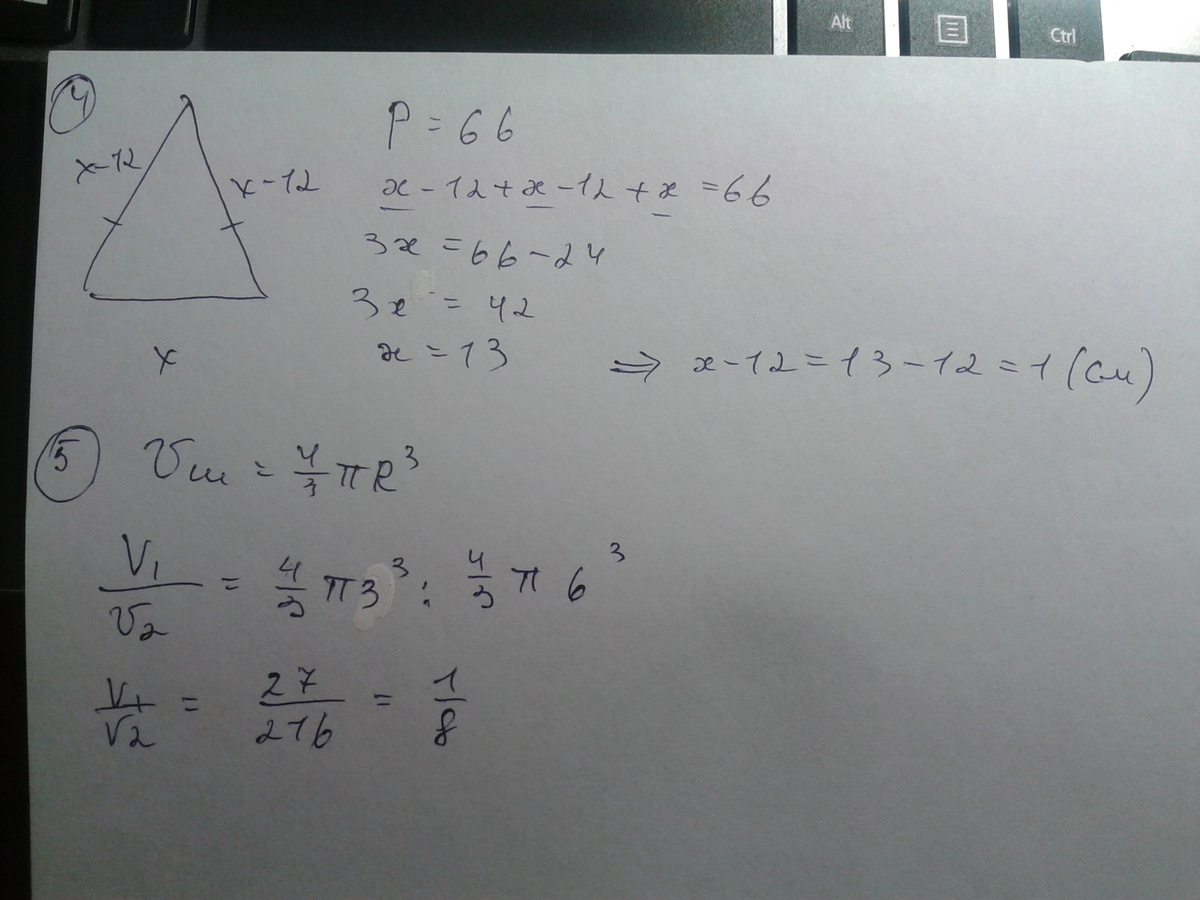 Alt
Ctrl
4
x-12
x-12
x
P = 66
x - 12 + x - 12 + x = 66
3x = 66 - 24
3x = 42
x = 13 ⇒ x - 12 = 13 - 12 = 1 (см)
5
Vш = 4/3 π R³
V₁/V₂ = 4/3 π 3³ : 4/3 π 6³
V₁/V₂ = 27/216 = 1/8